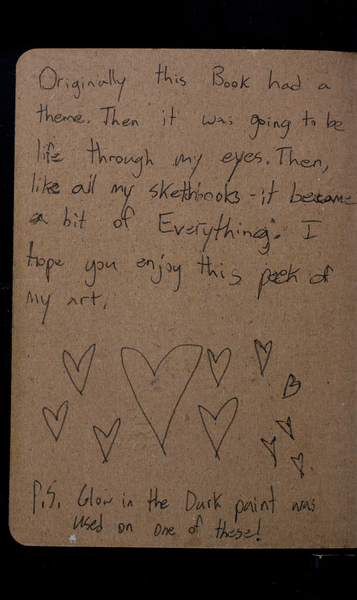 Originally this Book had a
theme. Then it was going to be
life through my eyes. Then,
like all my sketchbooks - it became
a bit of Everything. I
hope you enjoy this peek of
my art.
P.S. Glow in the Dark paint was
used on one of these!